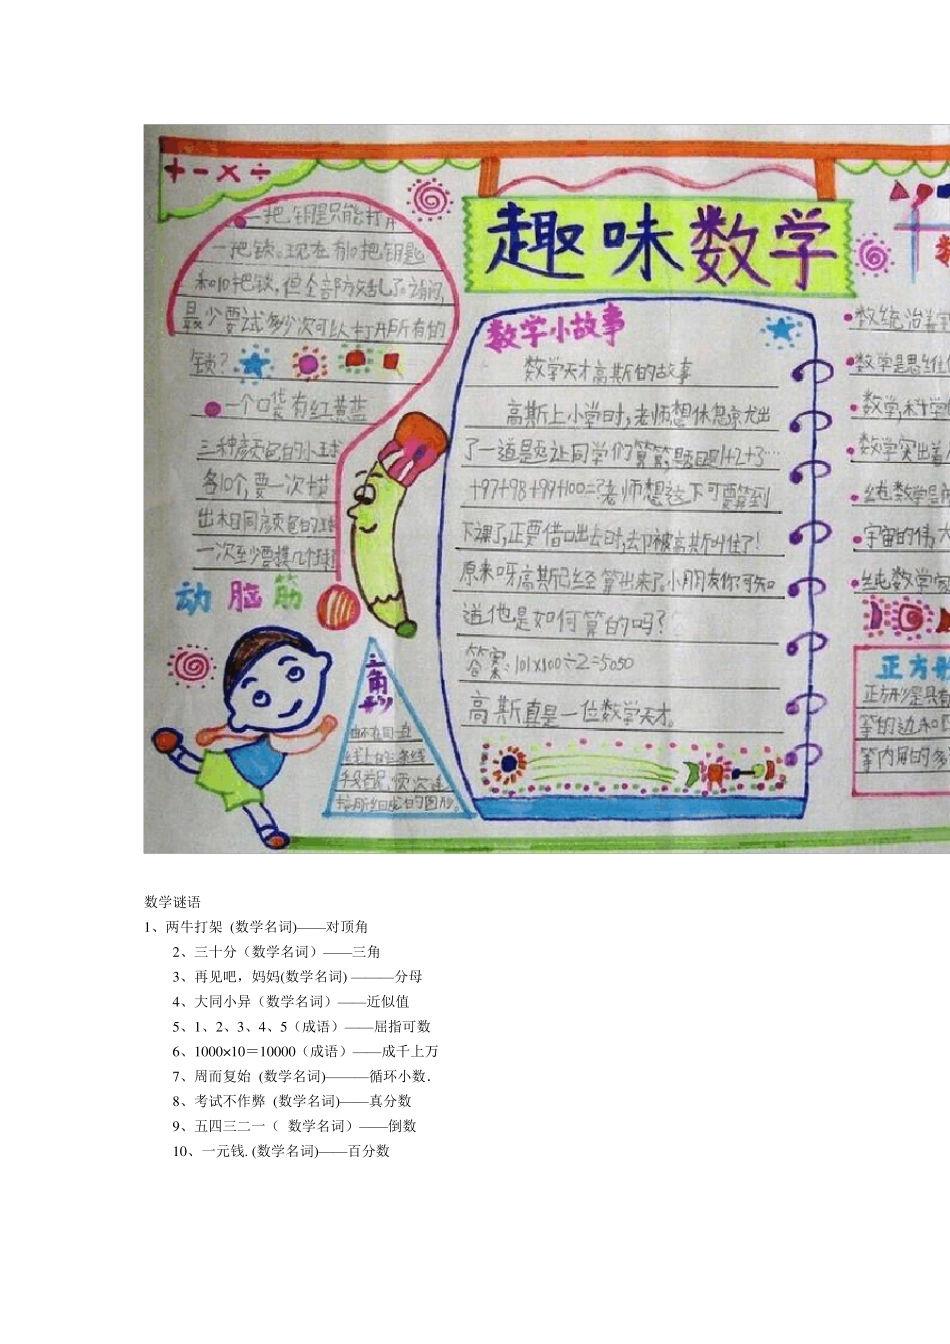 + - × ÷
一把钥匙只能打开
一把锁。现在有10把钥匙
和10把锁,但全部放乱了。请问,
最少要试多少次可以打开所有的
锁?
一个口袋有红黄蓝
三种颜色的小球
各10个,要一次摸
出相同颜色的球
一次至少要摸几个球
动脑筋
趣味数学
数学小故事
数学天才高斯的故事
高斯上小学时,老师想休息京尤出
了一道是题让同学们算算,题目是1+2+3…
+97+98+99+100=?老师想这下可要算到
下课了,正要借口出去时,却被高斯叫住了!
原来呀高斯已经算出来了。小朋友你可知
道他是如何算的吗?
答案:101×100÷2=5050
高斯真是一位数学天才。
三角形
由不在同一直
线上的三条线
段首尾 顺次连
接所组成的图形。
数统治着宇
数学是思维
数学,科学
数学突出
纯数学是
宇宙的伟大
纯数学家
正方形
正方形是具有
等的边和
等内角的多
数学谜语
1、两牛打架 (数学名词)——对顶角
2、三十分（数学名词）——三角
3、再见吧，妈妈(数学名词) ———分母
4、大同小异（数学名词）——近似值
5、1、2、3、4、5（成语）——屈指可数
6、1000×10＝10000（成语）——成千上万
7、周而复始 (数学名词)———循环小数.
8、考试不作弊 (数学名词)——真分数
9、五四三二一（ 数学名词）——倒数
10、一元钱. (数学名词)——百分数